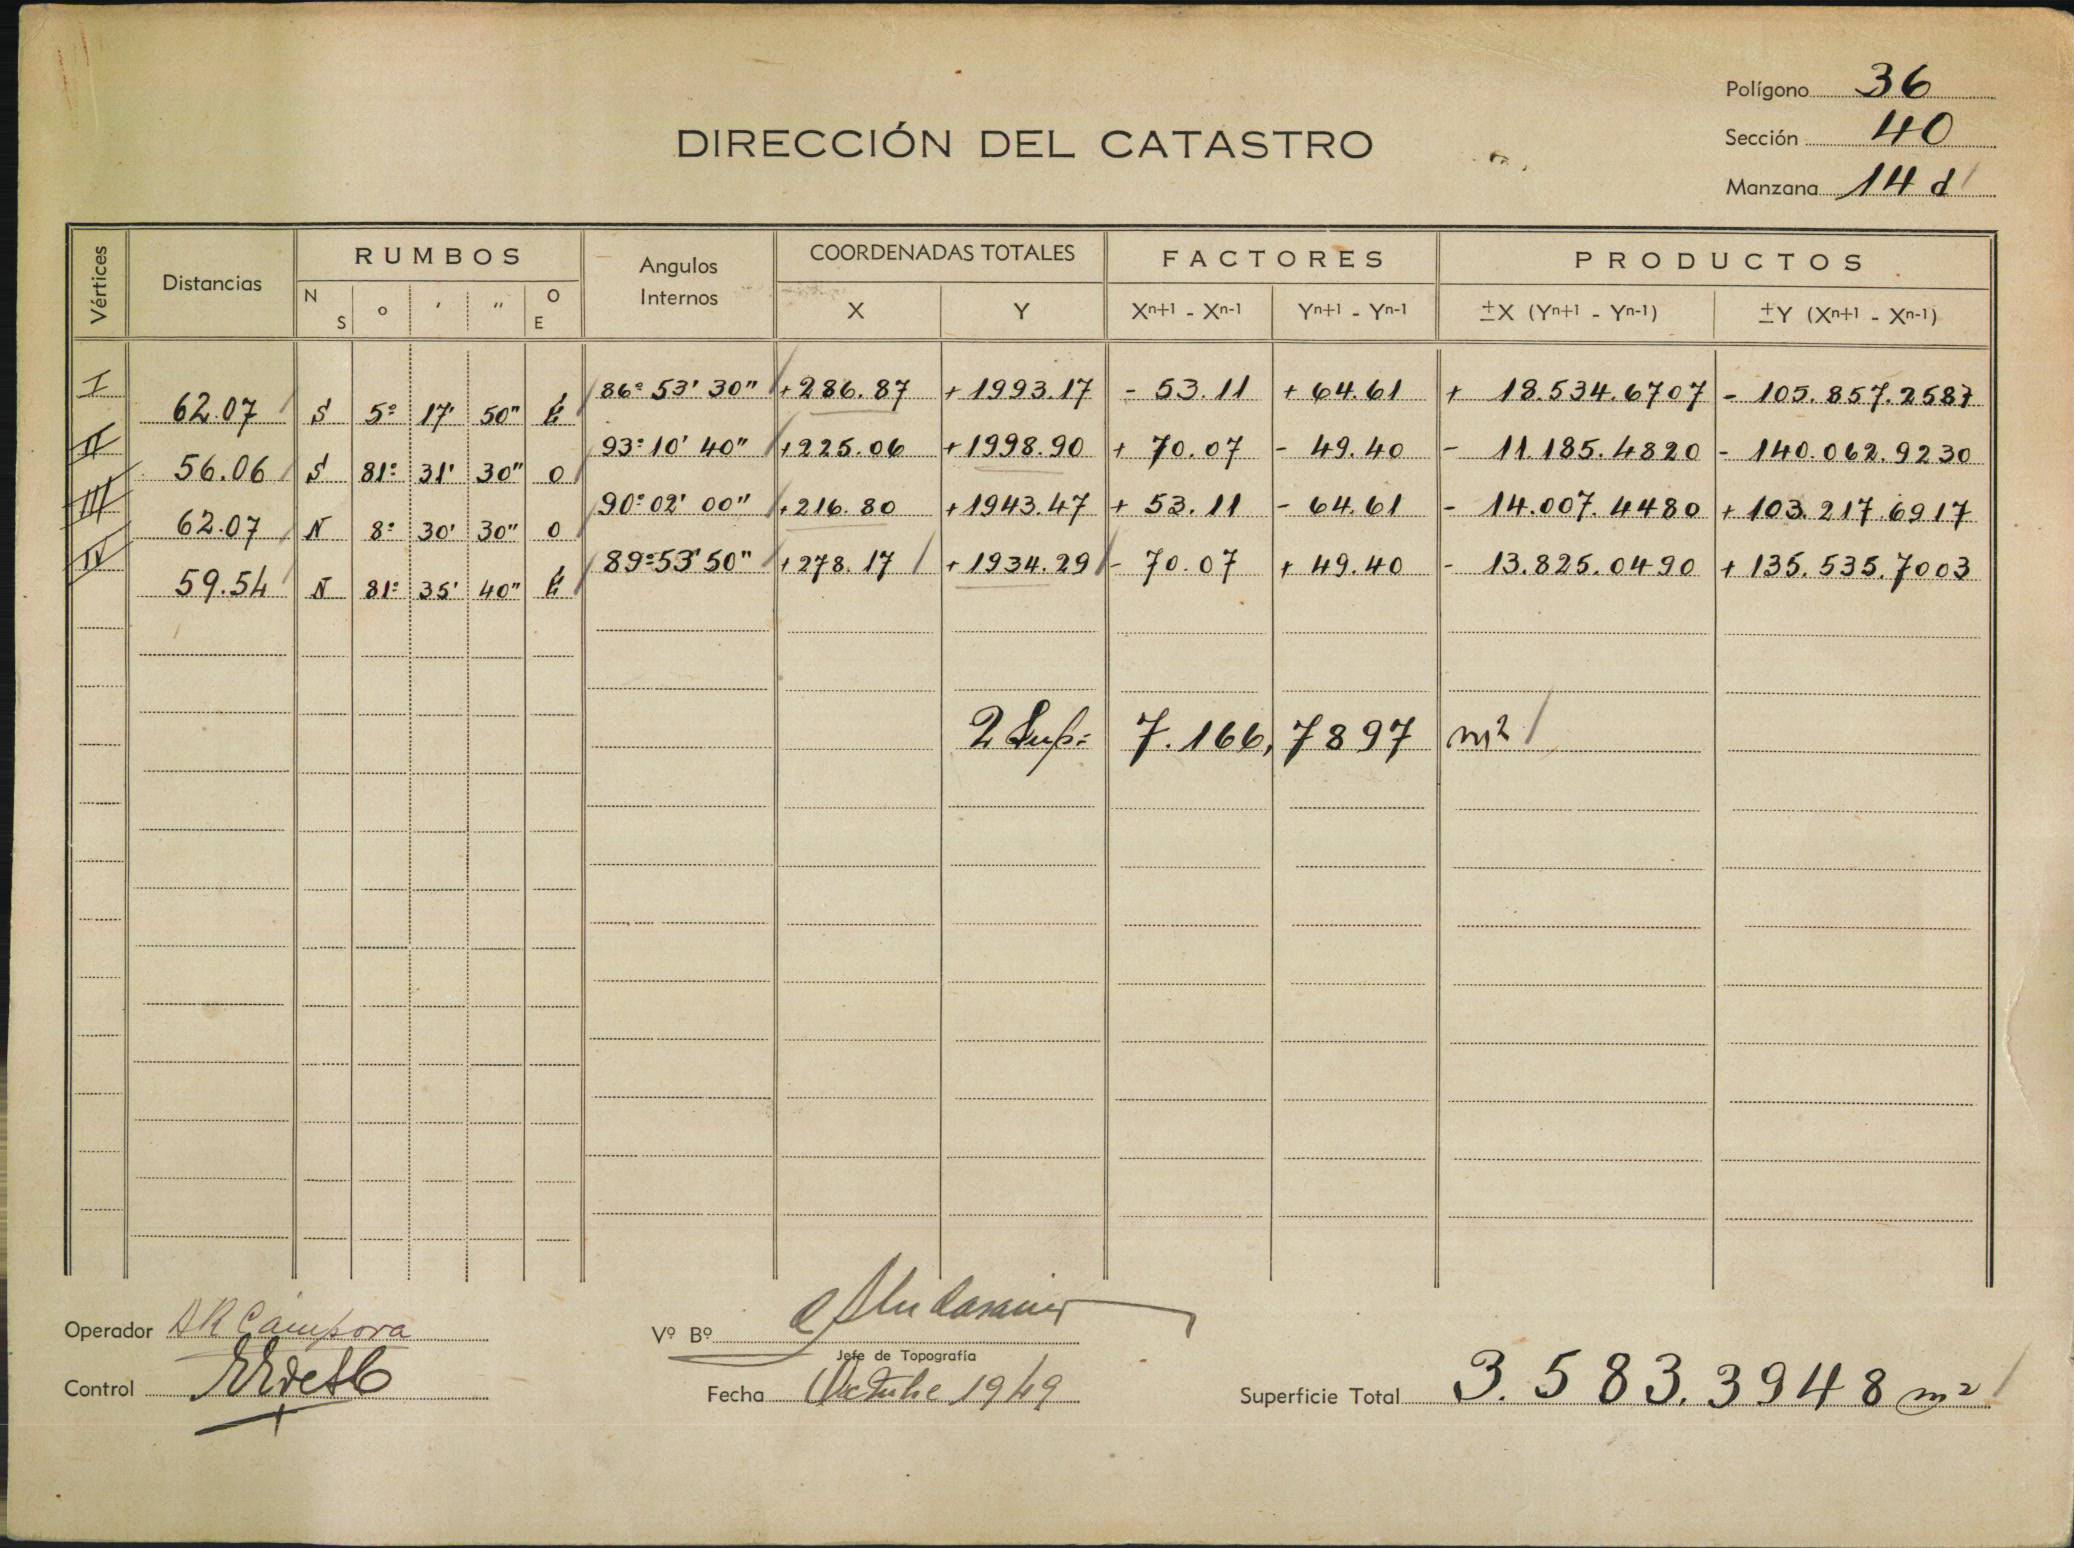 Polígono 36
DIRECCIÓN DEL CATASTRO
Sección 40
Manzana 14 d
Vértices Distancias RUMBOS Angulos Internos COORDENADAS TOTALES FACTORES PRODUCTOS
N S ° ' " O E X Y Xn+1 - Xn-1 Yn+1 - Yn-1 ±X (Yn+1 - Yn-1) ±Y (Xn+1 - Xn-1)
I 86° 53' 30" +286.87 +1993.17 - 53.11 + 64.61 + 18.534.6707 - 105.857.2587
62.07 S 5° 17' 50" E
II 93° 10' 40" +225.06 +1998.90 + 70.07 - 49.40 - 11.185.4820 - 140.062.9230
56.06 S 81° 31' 30" O
III 90° 02' 00" +216.80 +1943.47 + 53.11 - 64.61 - 14.007.4480 + 103.217.6917
62.07 N 8° 30' 30" O
IV 89° 53' 50" +278.17 +1934.29 - 70.07 + 49.40 - 13.825.0490 + 135.535.7003
59.54 N 81° 35' 40" E
2 Sup: 7.166,7897 m2
Operador A R Cámpora
Vº Bº
Jefe de Topografía
Control
Fecha Octubre 1949
Superficie Total 3.583.3948 m2